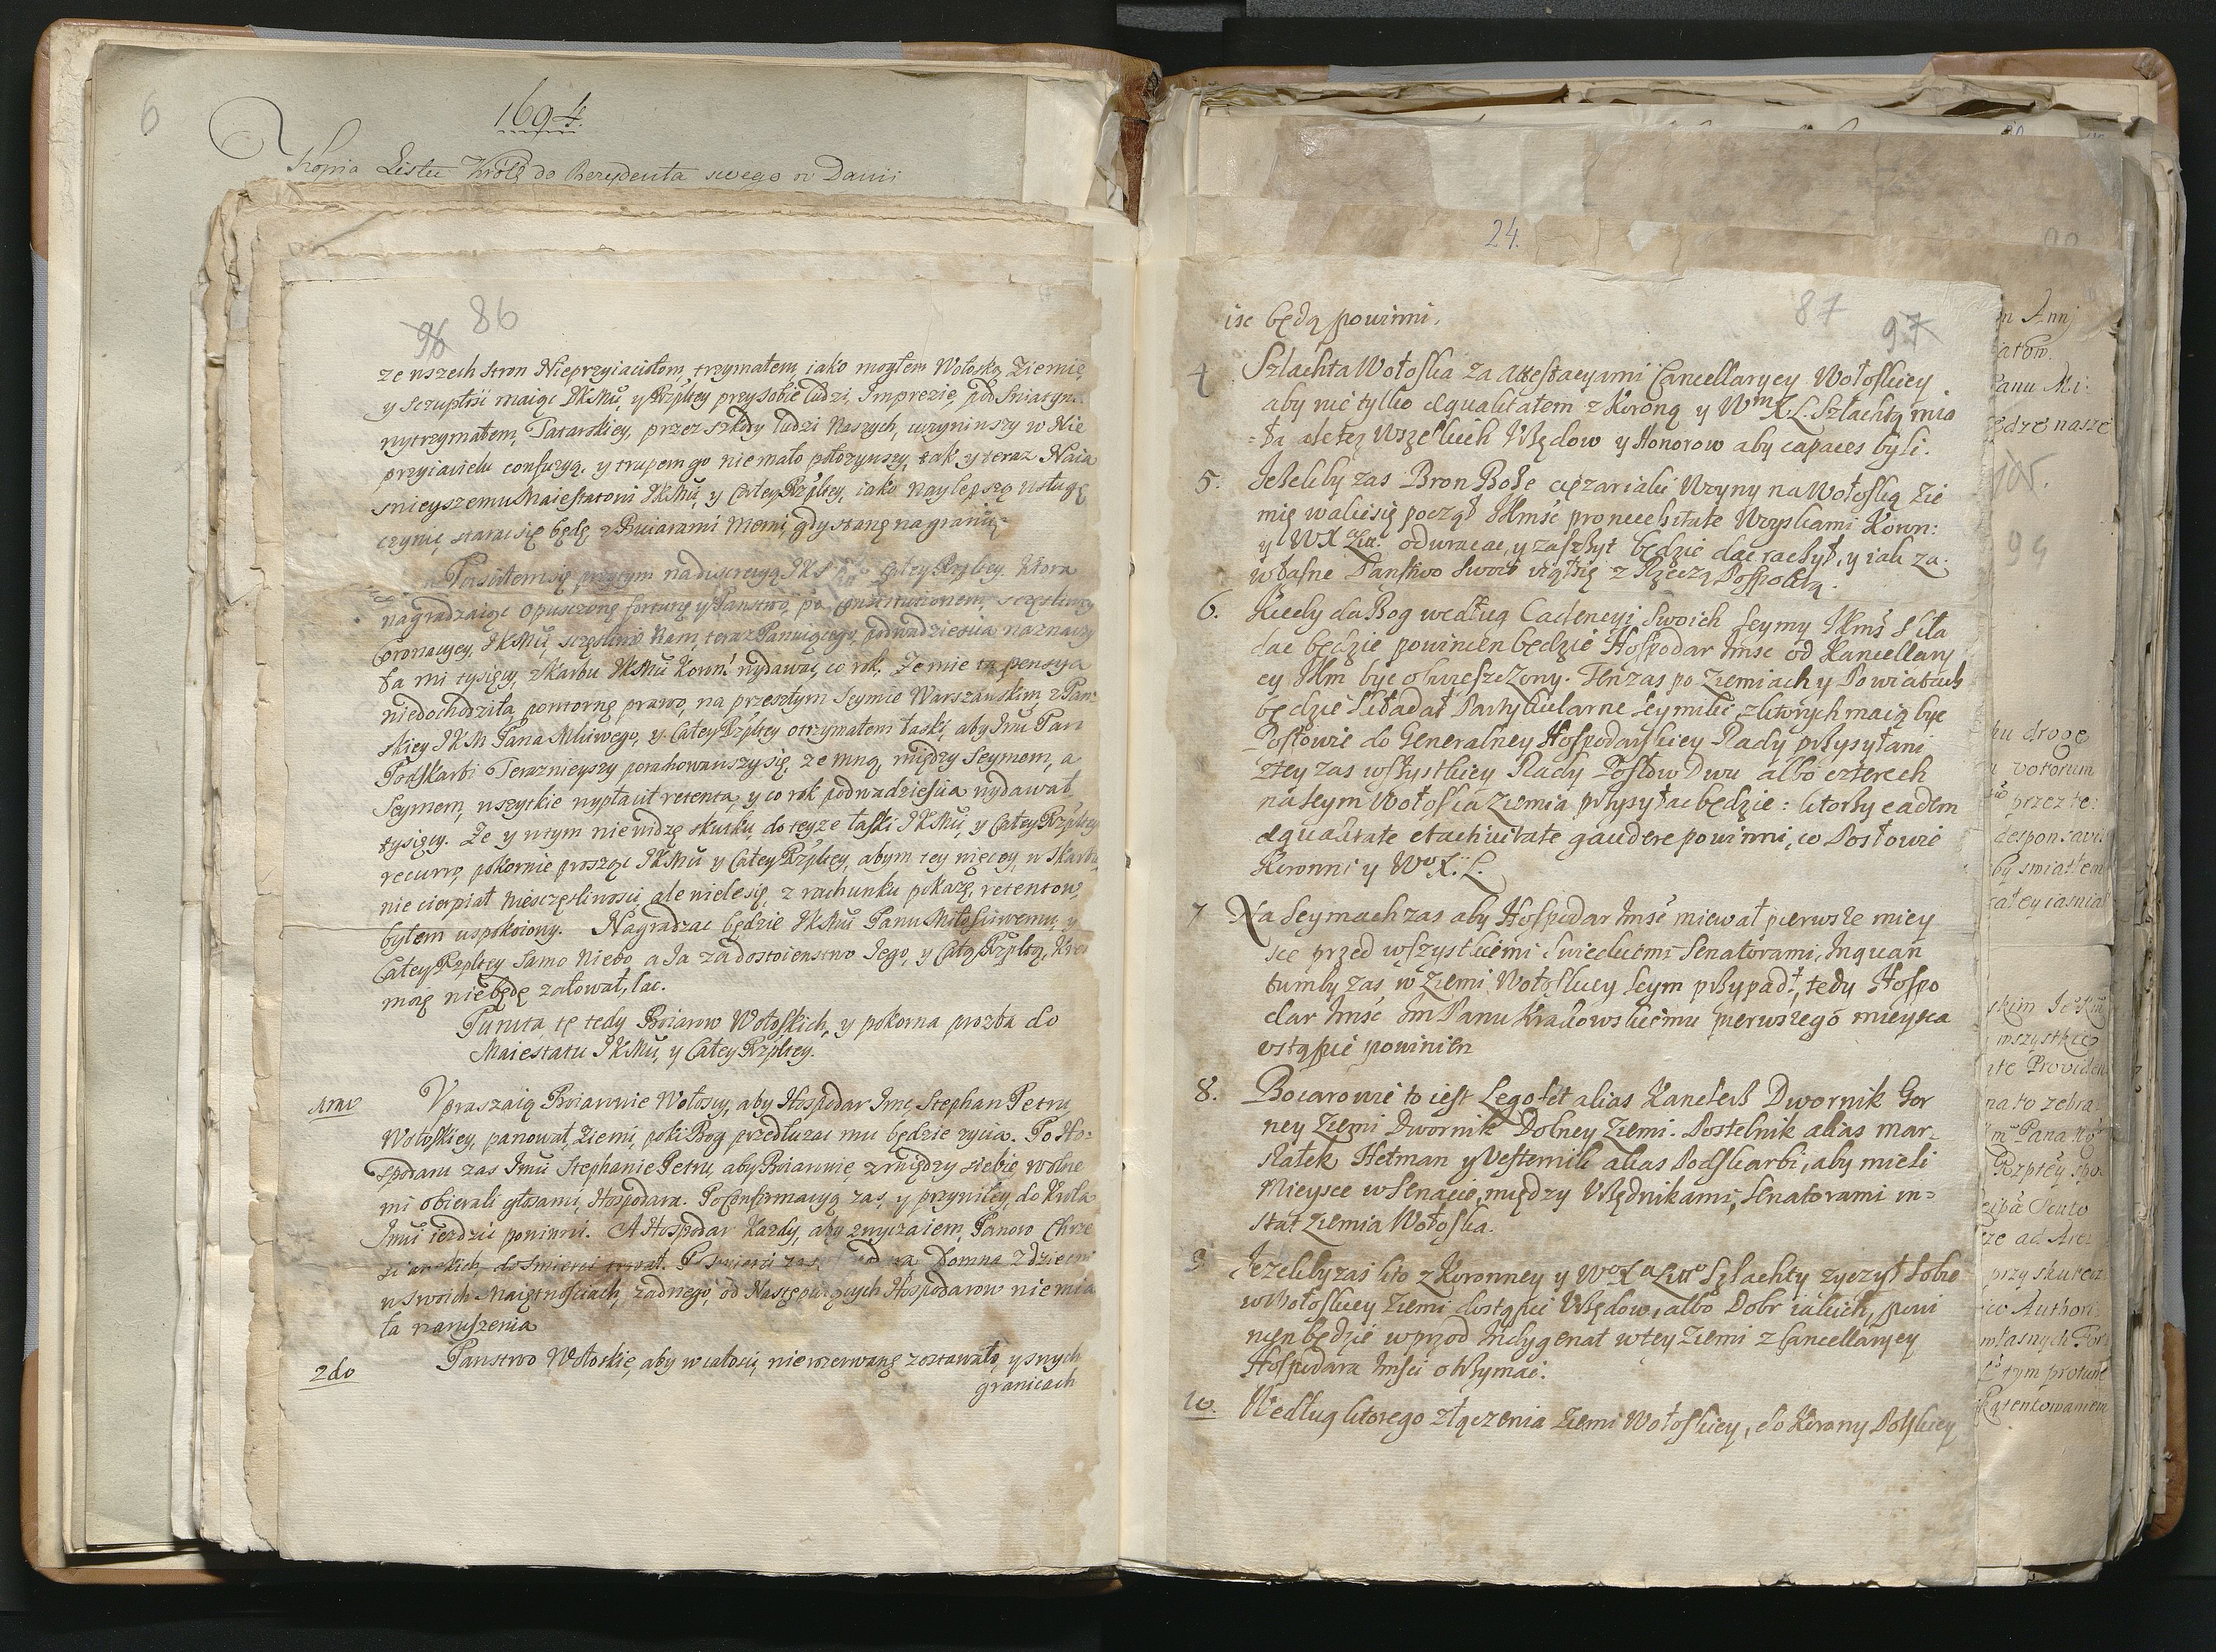 6
1694.
Kopia Listu Króla do Rezydenta swego w Danii
96 86
ze wszech stron Nieprzyiaciołom, trzymałem, iako mogłem Wołoską Ziemię
y Scrupłći maiąc JKMći, y Rzpltey przy sobie ludzi, Imprezie, pod Sniatynē
wytrzymałem, Tatarskiey, przez szkody ludzi Naszych, uczyniwszy w Nie
przyiacielu confuzyą, y trupem go nie mało położywszy, tak y teraz Naia
snieyszemu Maiestatowi JKMći, y Całey Rzpltey, iako naylepszą usługę
czynić, starać się będę z Boiarami memi, gdy stanę na granicy
Puściłem się przytym na diskrecyą całey Rzpltey. Ktora
nagradzaiąc opusczoną fortunę y Państwo, po szczęśliwey
Coronacyey, JKMći, szczęśliwie Nam, teraz Panuiącego, podwadzieścia naznaczy
ła mi tysięcy, z Skarbu JKMći Koronn: wydawać, co rok. Że mie ta pensya
niedochodziła, powtorne prawo, na przeszłym Seymie Warszawskim, z Pań
skiey JKM Pana Mćiwego, y Całey Rzpltey otrzymałem łaski, aby Jmći Pan
Podskarbi Teraznieyszy porachowawszy się, ze mną, między Seymem, a
Seymem, wszytkie wypłacił retenta, y co rok podwadzieścia wydawał
tysięcy. Że y wtym nie widzę skutku, do teyże łaski JKMći y Całey Rzpltey
recurro, pokornie prosząc JKMći y Całey Rzpltey, abym tey więcey, w Skarbu
nie cierpiał niesczęśliwości, ale wiele się, z rachunku pokaże, retentow,
byłem uspokoiony. Nagradzac będzie JKMći Panu Miłościwemu, y
Całey Rzpltey Samo Niebo, a Ja za dostoieństwo Jego, y Całą Rzpltą, Krwi
moię nie będę załował, lac.
Puncta te tedy Boiarow Wołoskich, y pokorna prozba do
Maiestatu JKMći, y Całey Rzpltey.
1mo Vpraszaią Boiarowie Wołoscy, aby Hospodar Jmć, Stephan Petru,
Wołoskiey, panował, Ziemi, poki Bog przedłużac mu będzie życia. Po Ho:
spodaru zas Jmći Stephanie Petru, aby Boiarowie, z między siebie, wolne
mi obierali głosami, Hospodara. Po Confirmacyą zas, y przywiley, do Krola
Jmći iezdzić powinni. A Hospodar Każdy, aby zwyczaiem, Panow Chrze
sciańskich, do Smierci trwał. Po Smierci zas, Domna z dziećmi
w Swoich Maiętnościach, żadnego, od Następuiących Hospodarow nie mia
ła naruszenia
2do Państwo Wołoskie, aby w całości, nierozerwane zostawało, y swych
granicach
24.
87
97
isc będą powinni.
4 Szlachta Wołoska za attestacyami Cancellaryey Wołoskiey
aby nie tylko aequalitatem z Koroną y W.X.L. Szlachtą mia
=ła ale tęz Wszelkich Vrzędow y Honorow aby capaces byli.
5. Jeżeliby zas Bron Boże ciężar iaki Wżyny na Wołoską Zie
mię walić się począł JKmść pro necessitate Wszyskiemi Koron:
y WX Litt. odwracac, y zaszczyt będzie dac raczył, y iak za
własne Państwo Swoie ująć się z Rzeczą Pospolitą.
6. Kiedy da Bog według Cadencyi Swoich Seymy JKmś skła
dac będzie powinien będzie Hospodar Jmsc od Kancellary
ey JKm byc obwieszczony. Ten zas po Ziemiach y Powiatach
będzie składał Partykularne Seymiki, z ktorych maią byc
Posłowie do Generalney Hospodarskiey Rady przysyłani
z tey zas wszystkiey Rady Posłow Dwu albo czterech
na Seym Wołoska Ziemia przysyłac będzie: ktorzy eadem
aequalitate et activitate gaudere powinni, co Posłowie
Koronni y W.X.L.
7 Na Seymach zas aby Hospodar Jmść miewał pierwsze miey
sce przed wszystkiemi Swieckiemi Senatorami, Inquan
tumby zas w Ziemi Wołoskiey Seym przypadł, tedy Hospo
dar Jmść Jm Panu Krakowskiemu pierwszego mieysca
vstąpić powinien
8. Bocarowie to iest Legofet alias Kanclerz Dwornik Gor
ney Ziemi Dwornik Dolney Ziemi. Postelnik alias mar-
szałek Hetman y Vesternik alias Podskarbi, aby mieli
Mieysce w Senacie, między Vrzędnikami, Senatorami in=
stat Ziemia Wołoska.
9 Jezeliby zas kto z Koronney y W.X. Litt. Szlachty zyczył Sobie
w Wołoskiey Ziemi dostąpić Vrzędow, albo Dobr iakich, powi
nien będzie wprzod Indygenat w tey Ziemi z Cancellaryey
Hospodara Jmści otrzymac.
10. Według ktorego złączenia Ziemi Wołoskiey, do Korony Polskiey
105.
99
ku drogę
votorum
przez te:
desponsavit
by swiatłem
wszystkie
na to zebra
Pana
Rzptey
Scuto
ze ad Are
przy skutecz
Authori
własnych
tym protune
Rątentowaniem